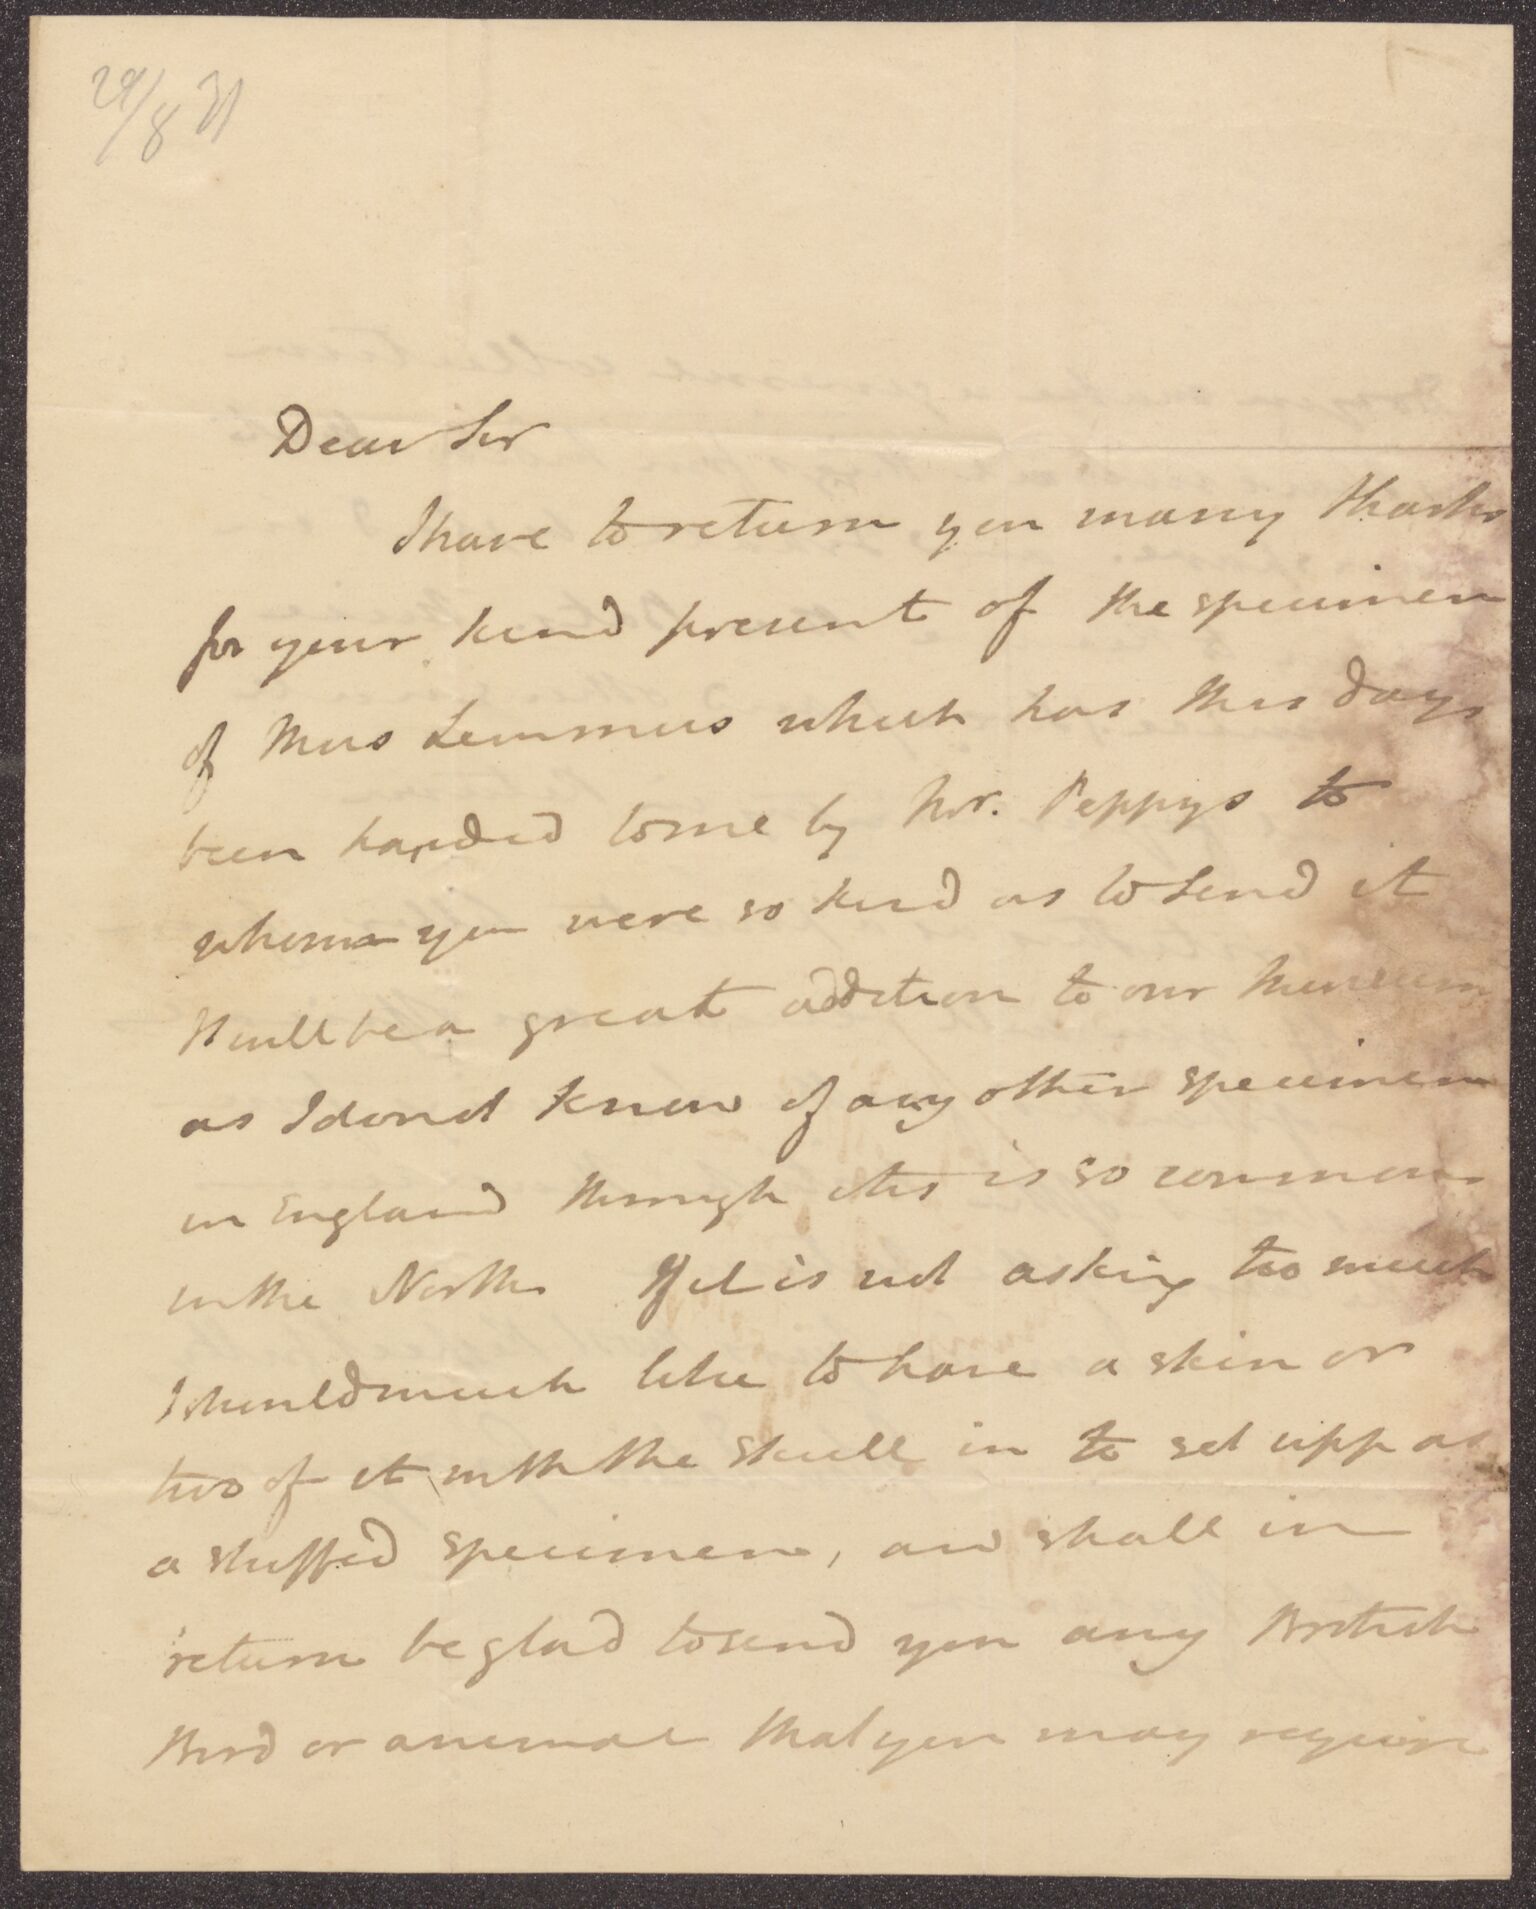 29/8 31
Dear Sir
I have to return you many thanks
for your kind present of the specimen
of Mus Lemmus which has this day
been handed to me by Mr. Peppys to
whom you were so kind as to send it
It will be a great addition to our Museum
as I do not know of any other specimen
in England though it is so common
in the North If it is not asking too much
I should much like to have a skin or
two of it with the skull in to set upp as
a stuffed specimen, and shall in
return be glad to send you any British
Bird or animal that you may require